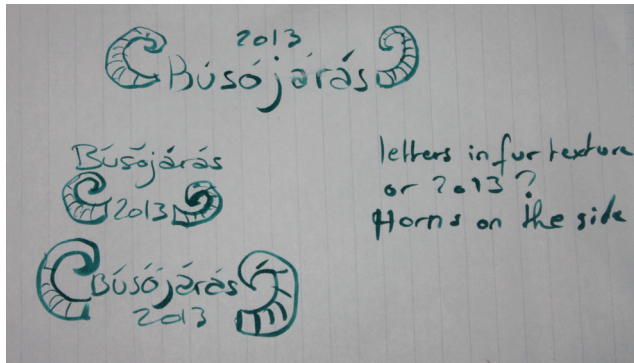 2013
Búsójárás
Búsójárás
2013
Búsójárás
2013
letters in fur texture
or 2013?
Horns on the side